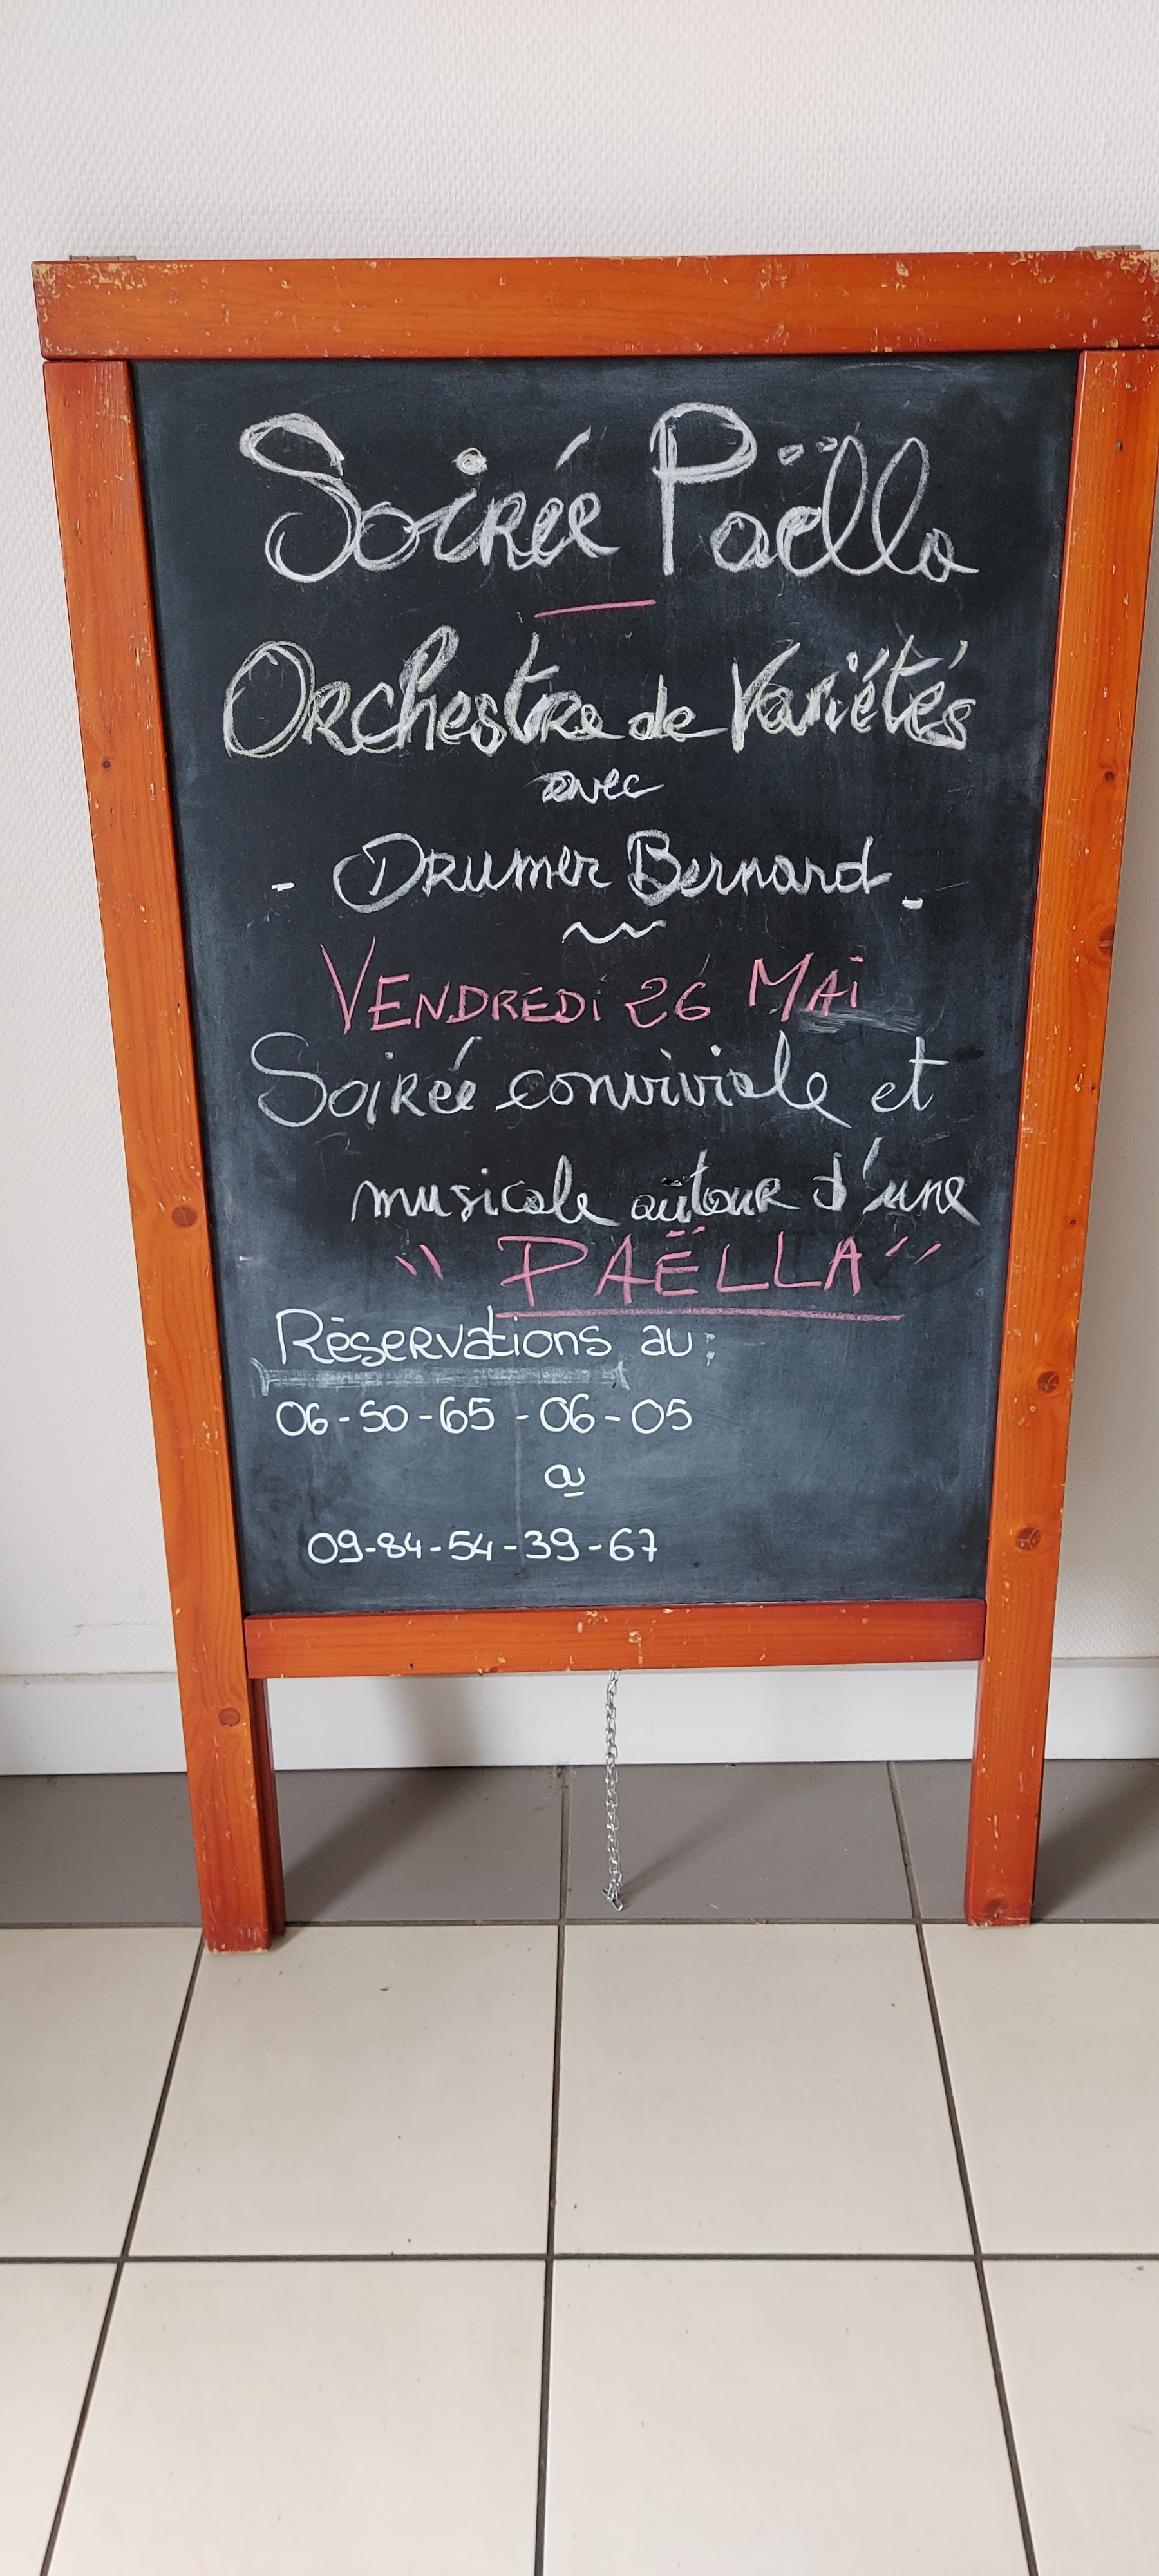 Soirée Paëlla
Orchestre de Variétés
avec
- Drumer Bernard -
VENDREDi 26 MAi
Soirée conviviale et
musicale autour d'une
" PAËLLA "
Réservations au :
06-50-65-06-05
09-84-54-39-67